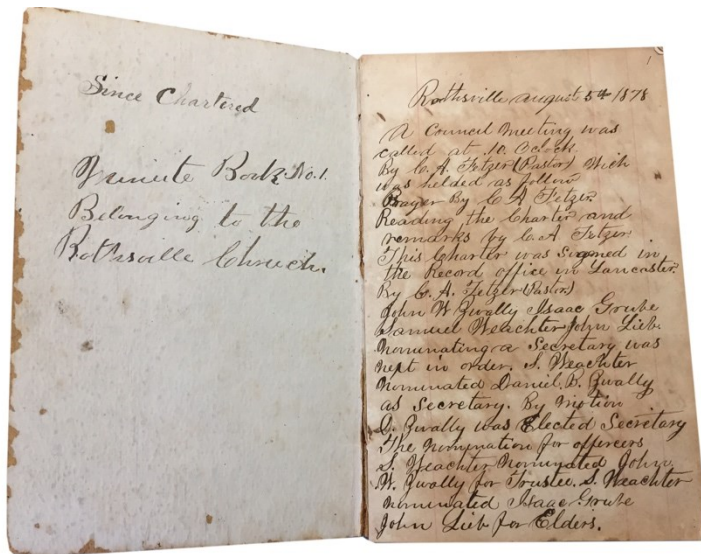 Since Chartered
Minute Book No. 1.
Belonging to the
Rothsville Chruch.
1
Rothsville august 5th 1878
A Council meeting was
called at 10. Oclock.
By C. A. Fetzer (Pastor) Wich
was helded as follow
Prayer By C A Fetzer.
Reading the Charter and
remarks by C. A Fetzer
This Charter was Singned in
the Record office in Lancaster.
By C. A. Fetzer (Pastor)
John W Zwally Isaac Grube
Samuel Weachter John Lieb.
nominating a Secretary was
next in order. S. Weachter
nominated Daniel. B. Zwally
as Secretary. By motion
D. Zwally was Elected Secretary
The nomination for officers
S. Weachter nominated John
W. Zwally for Trustee. S. Weachter
nominated Isaac Grube
John Lieb for Elders.